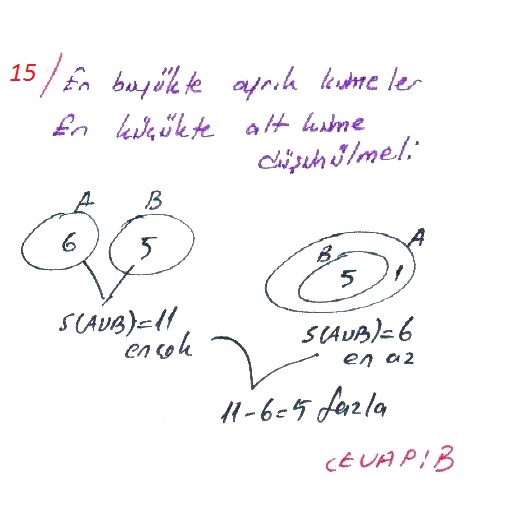 15/ En büyükte ayrık kümeler
En küçükte alt küme
düşünülmeli
A B
6 5
S(AUB)=11
en çok
A
B
5 1
S(AUB)=6
en az
11-6=5 fazla
CEVAP:B